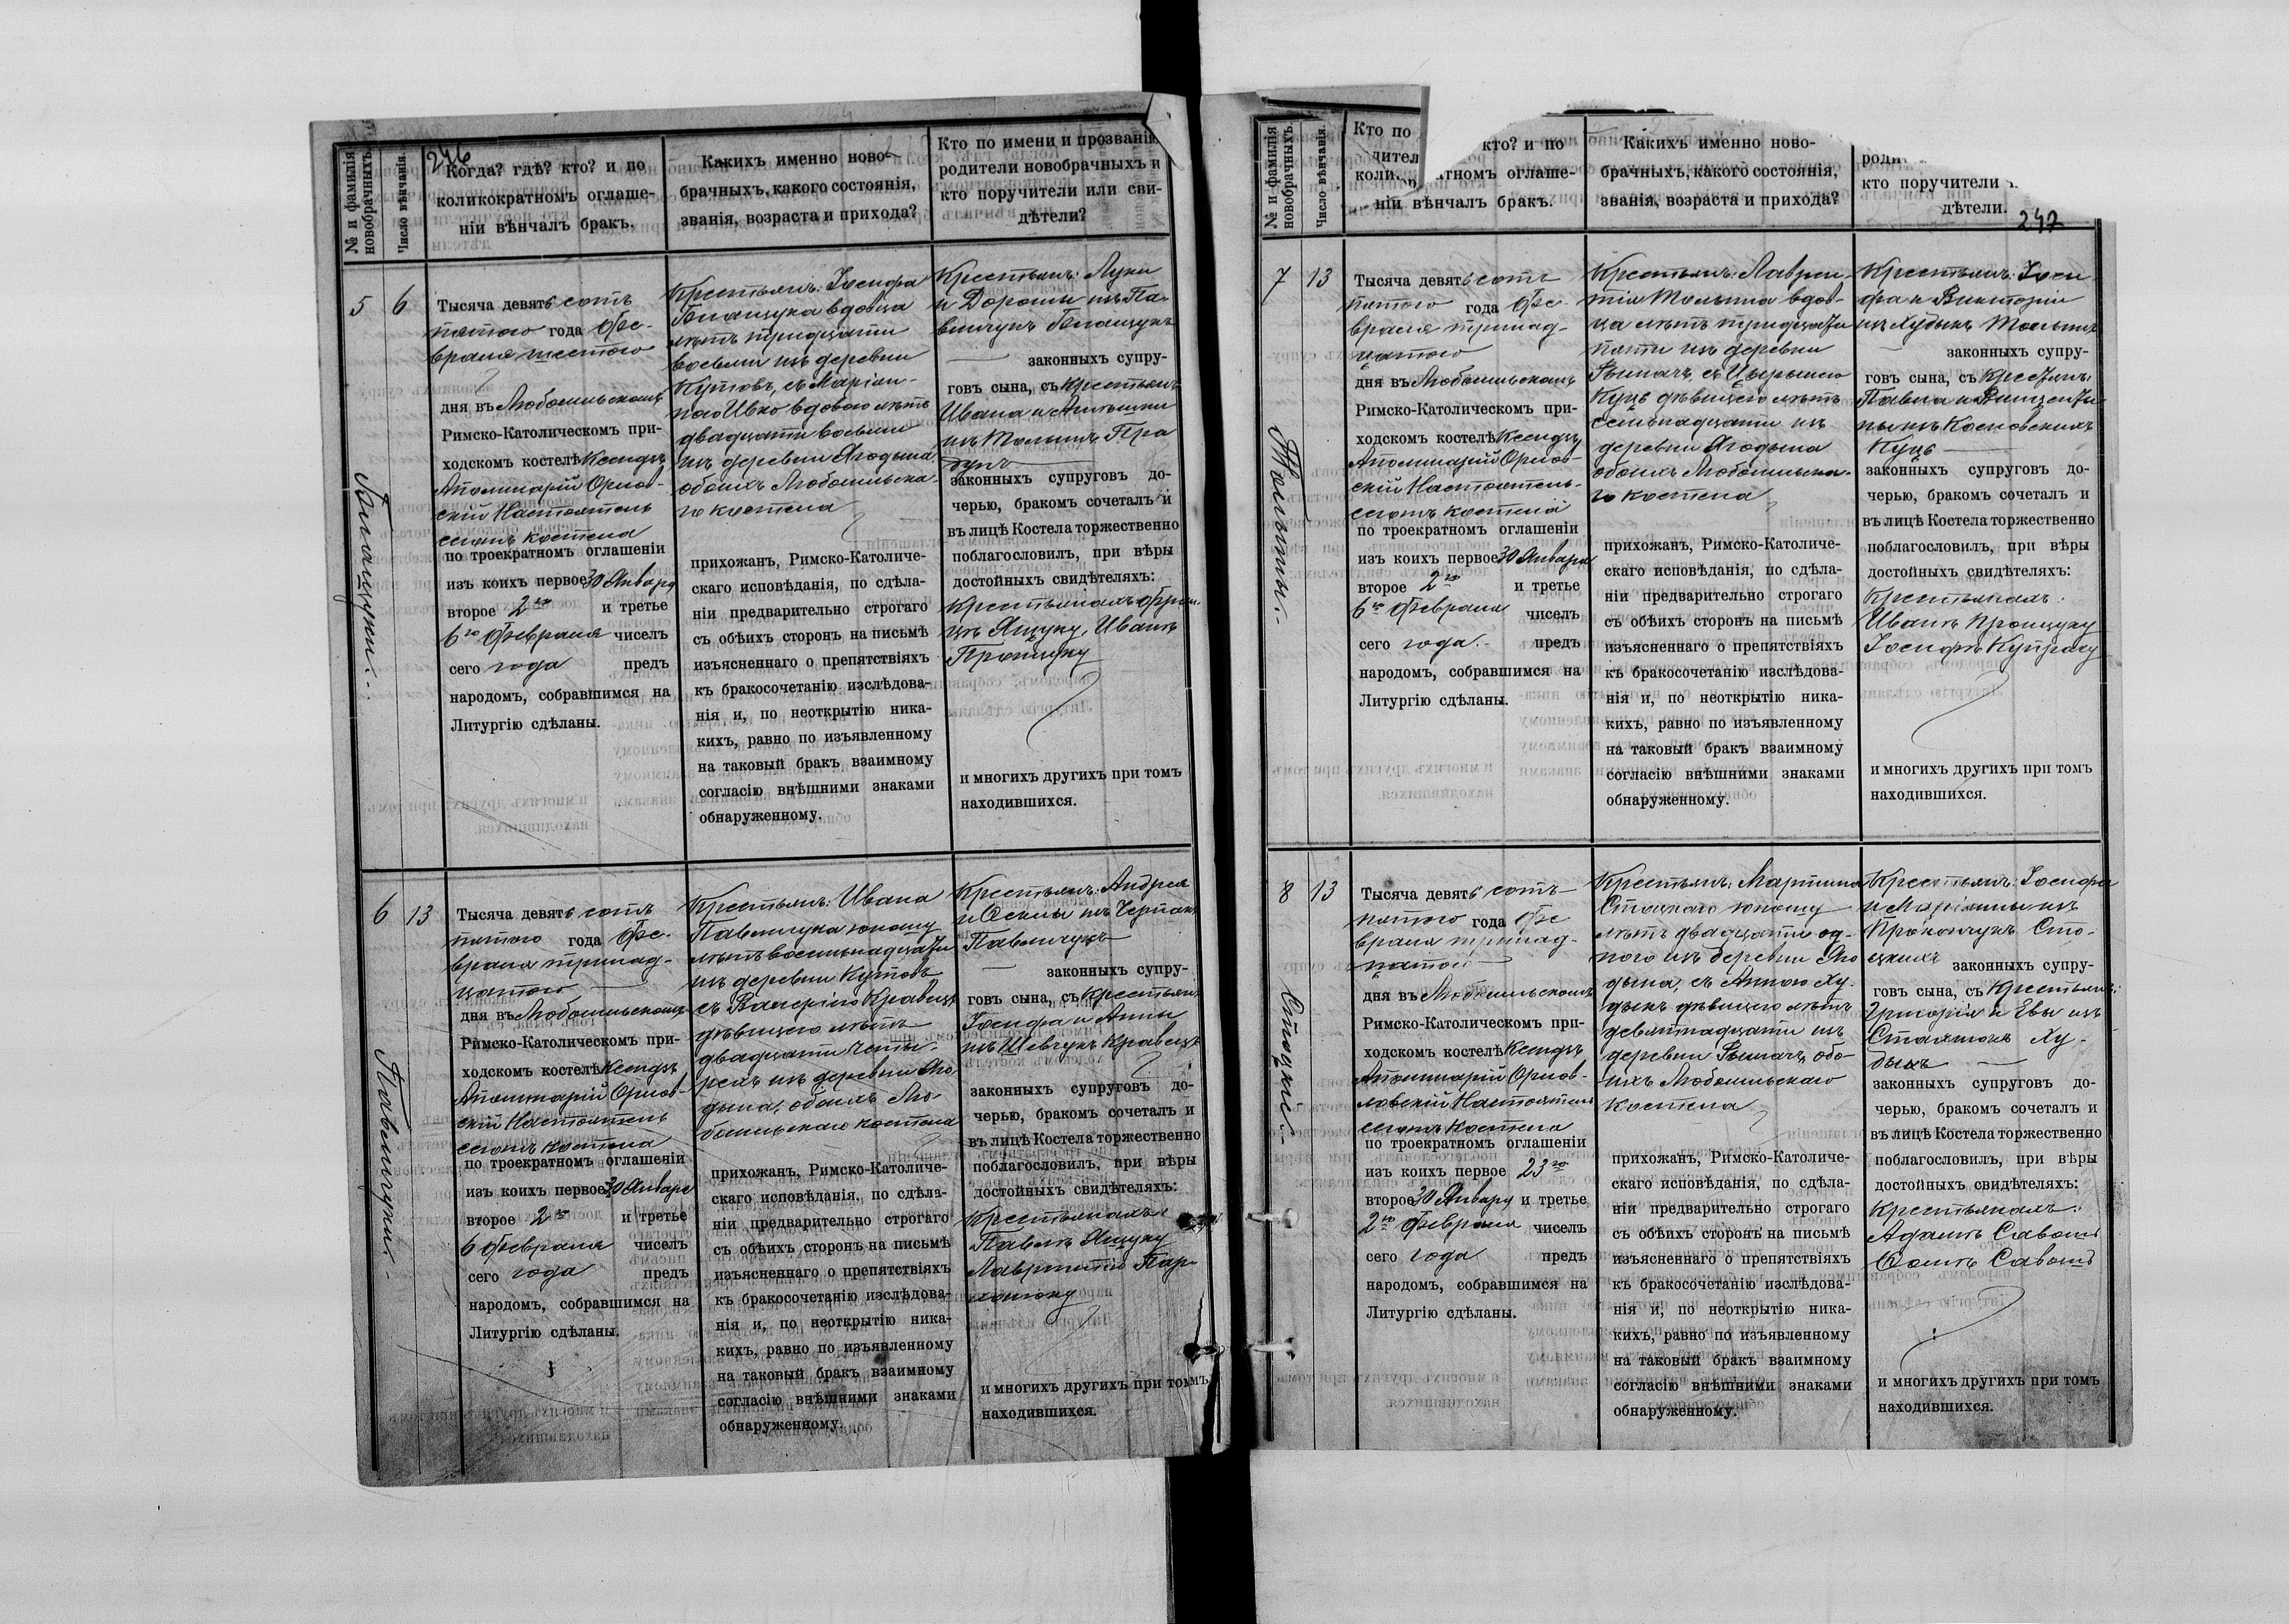 246
№ и фамилія новобрачныхъ.
Число вѣнчанія.
Когда? гдѣ? кто? и по
коликократномъ оглаше-
ніи вѣнчалъ бракъ.
Какихъ именно ново-
брачныхъ, какого состоянія,
званія, возраста и прихода?
Кто по имени и прозванію
родители новобрачныхъ и
кто поручители или сви-
дѣтели?
5
6
Тысяча девять сотъ
пятого года Фе-
враля шестого
дня въ Любомльскомъ
Римско-Католическомъ при-
ходскомъ костелѣ Ксендзъ
Аполинарій Орлов-
скій Настоятель
сего костела
по троекратномъ оглашеніи
изъ коихъ первое 30 Января
второе 2го и третье
6го Февраля чиселъ
сего года предъ
народомъ, собравшимся на
Литургію сдѣланы.
Крестьянъ: Іосифа
вдовца
лѣтъ тридцати
восьми изъ деревни
Кутовъ, съ Маріан-
ною Ивко вдовою лѣтъ
двадцати восьми
изъ деревни Ягодына
обоихъ Любомльска-
го костела
прихожанъ, Римско-Католиче-
скаго исповѣданія, по сдѣла-
ніи предварительно строгаго
съ обѣихъ сторонъ на письмѣ
изъясненнаго о препятствіяхъ
къ бракосочетанію изслѣдова-
нія и, по неоткрытію ника-
кихъ, равно по изъявленному
на таковый бракъ взаимному
согласію внѣшними знаками
обнаруженному.
Крестьянъ: Луки
и Дороты изъ Па-
влчукъ
законныхъ супру-
говъ сына, съ крестьянъ
Ивана и
изъ
законныхъ супруговъ до-
черью, бракомъ сочеталъ и
въ лицѣ Костела торжественно
поблагословилъ, при вѣры
достойныхъ свидѣтеляхъ:
Крестьянахъ Фран-
цъ Ящуку, Иванъ
Прощуку
и многихъ другихъ при томъ
находившихся.
6
13
Павлчуки.
Тысяча девять сотъ
пятого года Фе-
враля тринад-
цатого
дня въ Любомльскомъ
Римско-Католическомъ при-
ходскомъ костелѣ Ксендзъ
Аполинарій Орлов-
скій Настоятель
сего костела
по троекратномъ оглашеніи
изъ коихъ первое 30 Января
второе 2го и третье
6 Февраля чиселъ
сего года предъ
народомъ, собравшимся на
Литургію сдѣланы.
Крестьянъ: Ивана
Павлчука юношу
лѣтъ восемьнадцати
изъ деревни Кутовъ
съ Валеріею Кравецъ
дѣвицею лѣтъ
двадцати четы-
рехъ изъ деревни Яго-
дына, обоихъ Лю-
бомльскаго костела
прихожанъ, Римско-Католиче-
скаго исповѣданія, по сдѣла-
ніи предварительно строгаго
съ обѣихъ сторонъ на письмѣ
изъясненнаго о препятствіяхъ
къ бракосочетанію изслѣдова-
нія и, по неоткрытію ника-
кихъ, равно по изъявленному
на таковый бракъ взаимному
согласію внѣшними знаками
обнаруженному.
Крестьянъ: Андрея
и изъ
Павлчукъ
законныхъ супру-
говъ сына, съ крестьянъ
Іосифа и Анны
изъ Шевчукъ Кравецъ
законныхъ супруговъ до-
черью, бракомъ сочеталъ и
въ лицѣ Костела торжественно
поблагословилъ, при вѣры
достойныхъ свидѣтеляхъ:
Крестьянахъ:
Павлъ Ящуку
Лаврентію Пар-
хомюку
и многихъ другихъ при томъ
находившихся.
247
№ и фамилія новобрачныхъ.
Число вѣнчанія.
Кто по
дител
коли
кто? и по
тномъ оглаше-
ніи вѣнчалъ бракъ.
Какихъ именно ново-
брачныхъ, какого состоянія,
званія, возраста и прихода?
роди
кто поручители
дѣтели.
7
13
Тысяча девять сотъ
пятого года Фе-
враля тринад-
цатого
дня въ Любомльскомъ
Римско-Католическомъ при-
ходскомъ костелѣ Ксендзъ
Аполинарій Орлов-
скій Настоятель
сего костела
по троекратномъ оглашеніи
изъ коихъ первое 30 Января
второе 2го и третье
6го Февраля чиселъ
сего года. предъ
народомъ, собравшимся на
Литургію сдѣланы.
Крестьянъ: Лаврен-
тія вдов-
ца лѣтъ тридцати
пяти изъ деревни
Рымачъ, съ
Куць дѣвицею лѣтъ
семьнадцати изъ
деревни Ягодына
обоихъ Любомльска-
го костела
прихожанъ, Римско-Католиче-
скаго исповѣданія, по сдѣла-
ніи предварительно строгаго
съ обѣихъ сторонъ на письмѣ
изъясненнаго о препятствіяхъ
къ бракосочетанію изслѣдова-
нія и, по неоткрытію ника-
кихъ, равно по изъявленному
на таковый бракъ взаимному
согласію внѣшними знаками
обнаруженному.
Крестьянъ: Іоси-
фа и Викторіи
изъ Худыкъ
законныхъ супру-
говъ сына, съ крестьянъ
Павла и Винценти-
ны изъ Косновскихъ
Куць
законныхъ супруговъ до-
черью, бракомъ сочеталъ и
въ лицѣ Костела торжественно
поблагословилъ, при вѣры
достойныхъ свидѣтеляхъ:
Крестьянахъ:
Иванъ Прощуку
Іосифъ Купраку
и многихъ другихъ при томъ
находившихся.
8
13
Стоцкіе.
Тысяча девять сотъ
пятого года Фе
враля тринад-
цатого
дня въ Любомльскомъ
Римско-Католическомъ при-
ходскомъ костелѣ Ксендзъ
Аполинарій Орлов-
ловскій Настоятель
сего костела
по троекратномъ оглашеніи
изъ коихъ первое 23го
второе 30 Января и третье
2го Февраля чиселъ
сего года предъ
народомъ, собравшимся на
Литургію сдѣланы.
Крестьянъ: Мартина
Стоцкаго юношу
лѣтъ двадцати од-
ного изъ деревни Яго
дына, съ Анною Ху-
дыкъ дѣвицею лѣтъ
девятнадцати изъ
деревни Рымачъ, обо-
ихъ Любомльскаго
костела
прихожанъ, Римско-Католиче-
скаго исповѣданія, по сдѣла-
ніи предварительно строгаго
съ обѣихъ сторонъ на письмѣ
изъясненнаго о препятствіяхъ
къ бракосочетанію изслѣдова-
нія и, по неоткрытію ника-
кихъ, равно по изъявленному
на таковый бракъ взаимному
согласію внѣшними знаками
обнаруженному.
Крестьянъ: Іосифа
и Маріанны изъ
Прокопчукъ Сто-
цкихъ законныхъ супру-
говъ сына, съ крестьянъ:
Григорія и Евы изъ
Ху-
дыкъ
законныхъ супруговъ до-
черью, бракомъ сочеталъ и
въ лицѣ Костела торжественно
поблагословилъ, при вѣры
достойныхъ свидѣтеляхъ:
Крестьянахъ:
Адамъ Савошъ
Савошъ
и многихъ другихъ при томъ
находившихся.